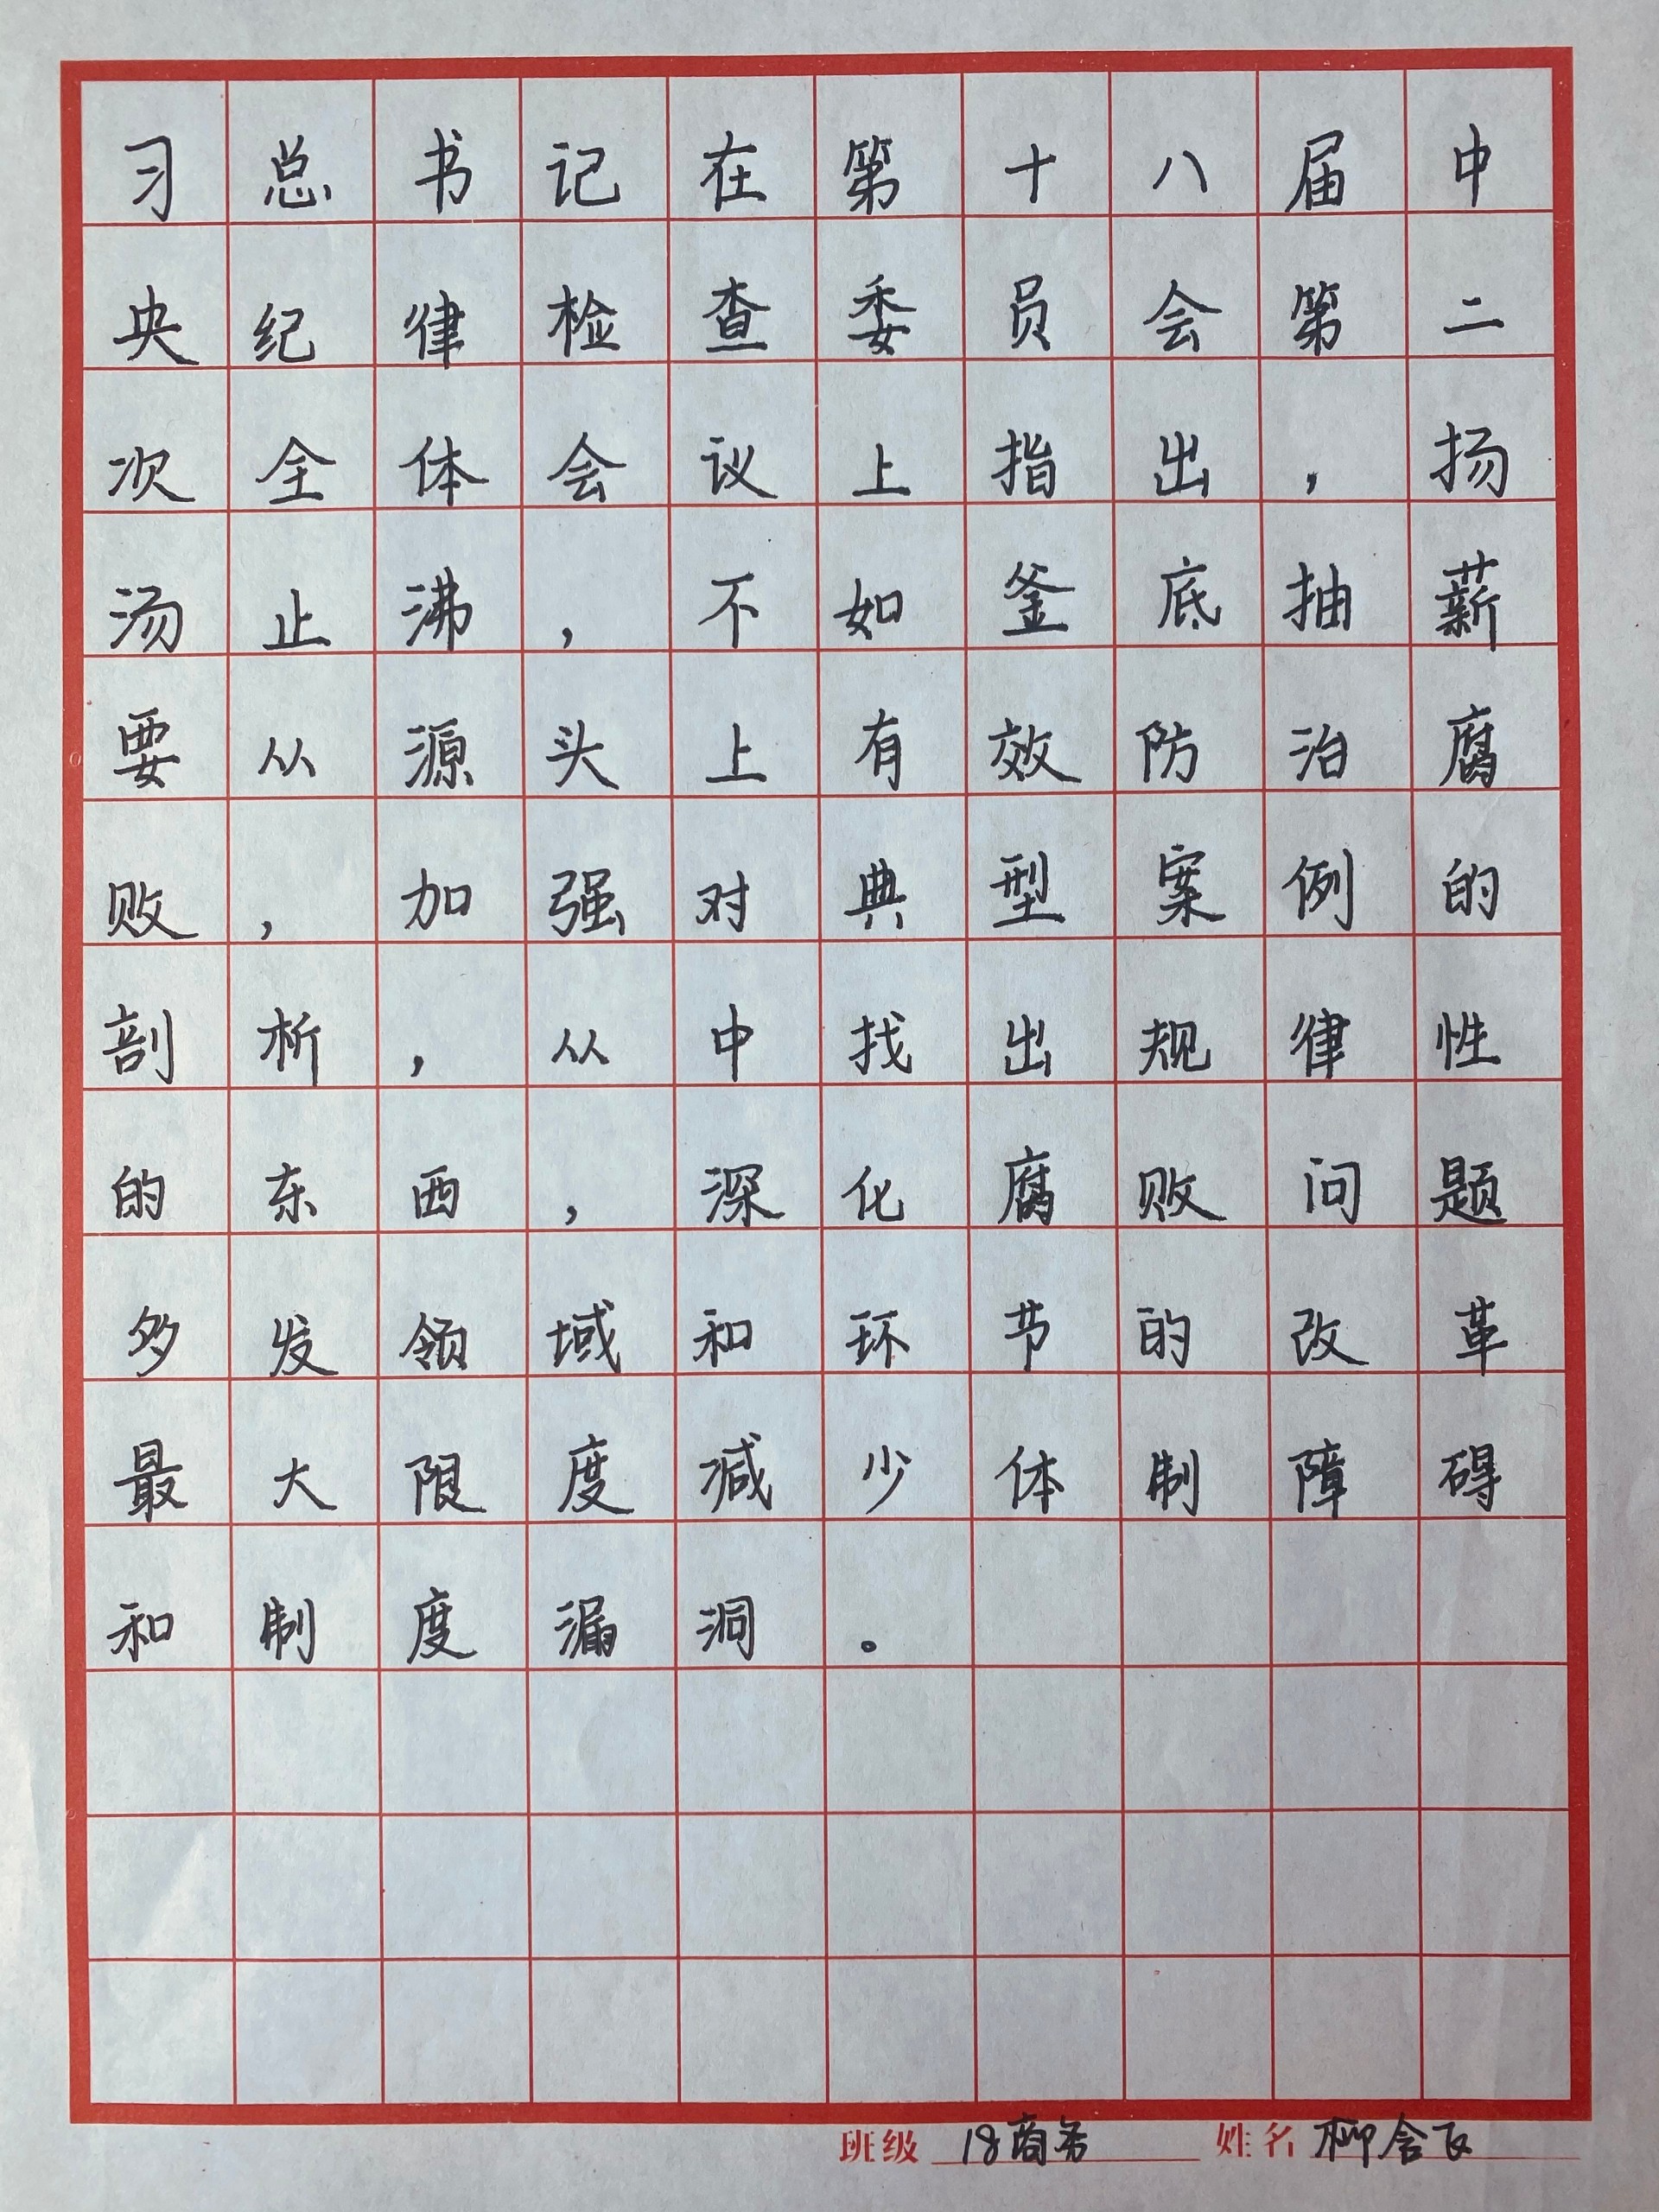 习总书记在第十八届中
央纪律检查委员会第二
次全体会议上指出，扬
汤止沸，不如釜底抽薪
要从源头上有效防治腐
败，加强对典型案例的
剖析，从中找出规律性
的东西，深化腐败问题
多发领域和环节的改革
最大限度减少体制障碍
和制度漏洞。
班级 18商务 姓名 柳含飞